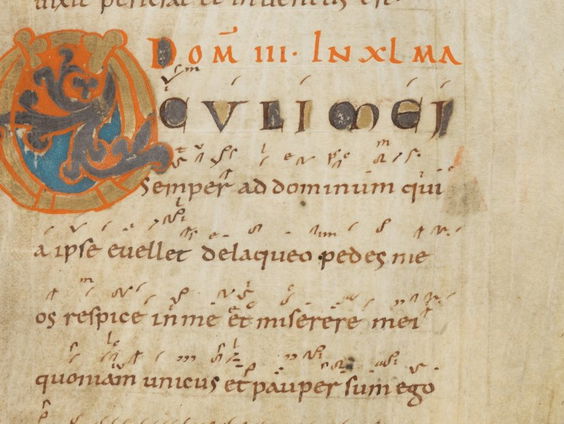 dixit perierat et inventus est
Dom̄ III· IN XL MA
OCULI MEI
Semper ad dominum qui
a ipse evellet delaqueo pedes me
os respice inme et miserere mei
quoniam unicus et pauper sum ego